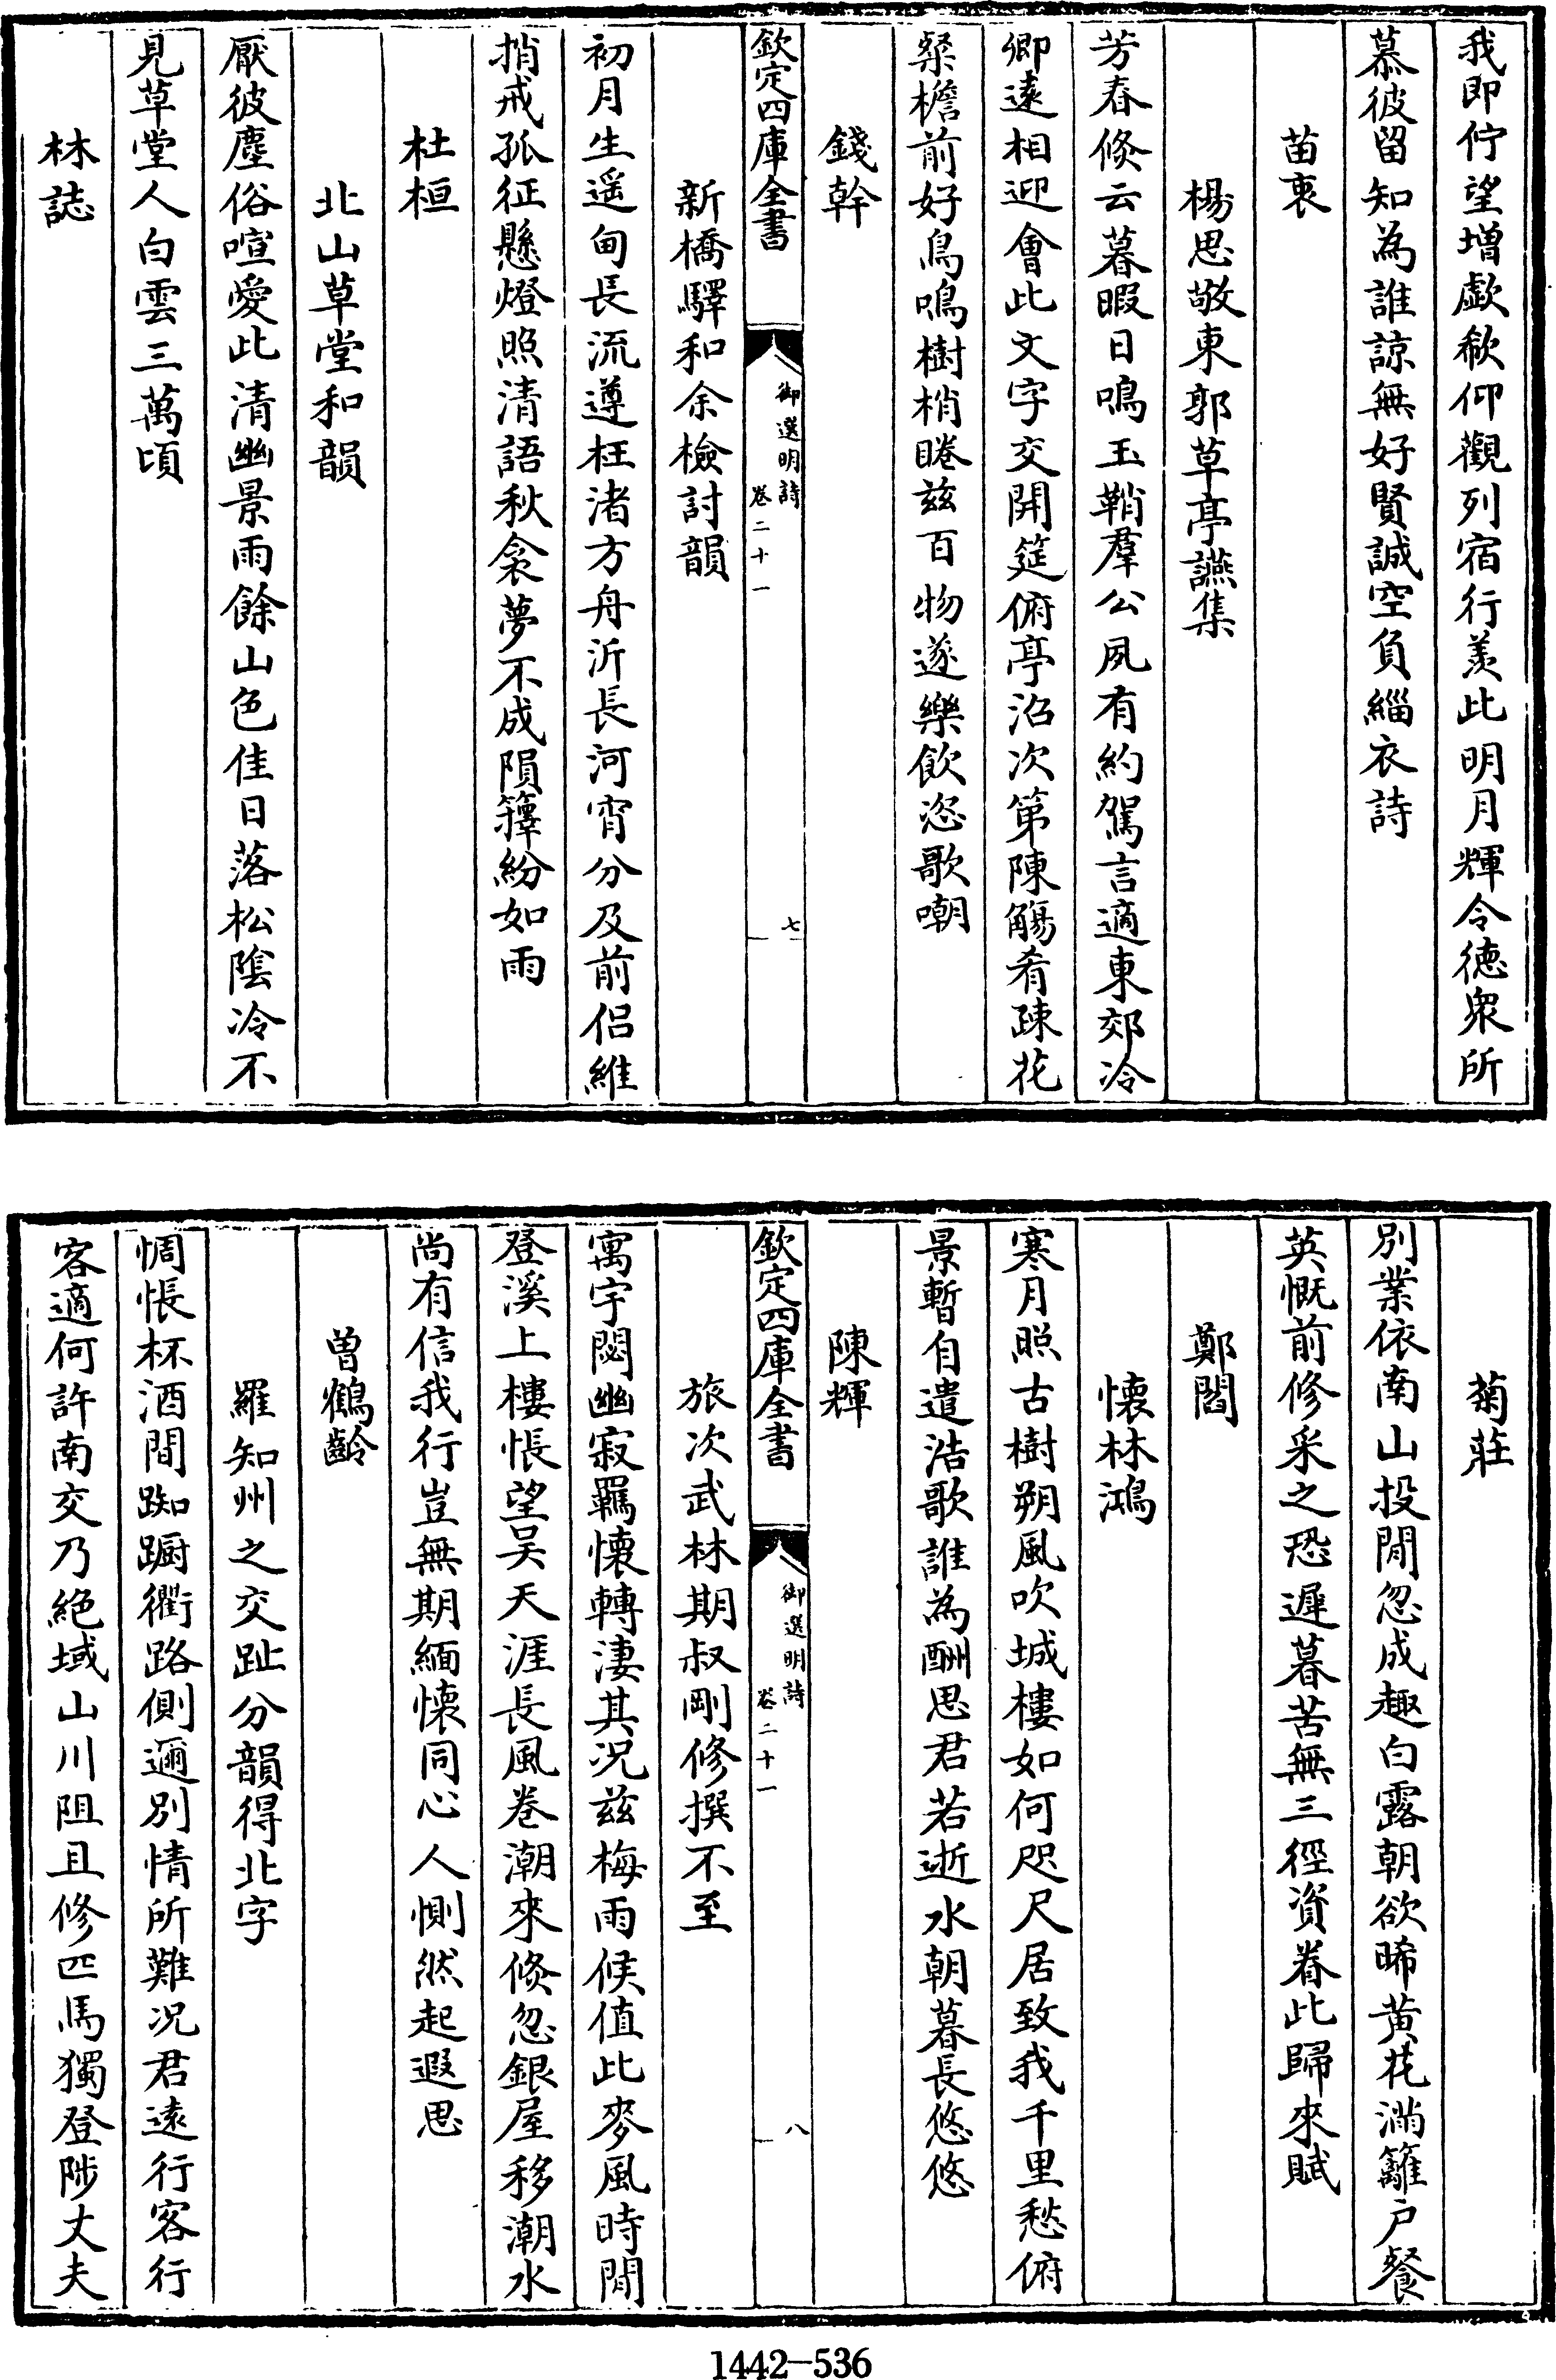 我即佇望增歔欷仰觀列宿行羨此明月輝令德衆所
慕彼留知為誰諒無好賢誠空負緇衣詩
苗衷
楊思敬東郭草亭讌集
芳春倐云暮暇日鳴玉鞘羣公夙有約駕言適東郊泠
卿遠相迎會此文字交開筵俯亭沼次第陳觴肴疎花
粲檐前好鳥鳴樹梢睠兹百物遂樂飲恣歌嘲
錢幹
欽定四庫全書
御選明詩
卷二十一
七
新橋驛和余檢討韻
初月生遥甸長流遵枉渚方舟泝長河宵分及前侣維
捎戒孤征懸燈照清語秋衾夢不成隕籜紛如雨
杜桓
北山草堂和韻
厭彼塵俗喧愛此清幽景雨餘山色佳日落松陰冷不
見草堂人白雲三萬頃
林誌
菊莊
別業依南山投閒忽成趣白露朝欲晞黄花滿籬户餐
英慨前修采之恐遲暮苦無三徑資眷此歸來賦
鄭閻
懐林鴻
寒月照古樹朔風吹城樓如何咫尺居致我千里愁俯
景暫自遣浩歌誰為酬思君若逝水朝暮長悠悠
陳輝
欽定四庫全書
御選明詩
卷二十一
八
旅次武林期叔剛修撰不至
寓宇閟幽寂羈懐轉淒其况兹梅雨候值此麥風時閒
登溪上樓悵望吴天涯長風卷潮來倐忽銀屋移潮水
尚有信我行豈無期緬懐同心人惻然起遐思
曽鶴齡
羅知州之交趾分韻得北字
惆悵杯酒間踟蹰衢路側邇別情所難况君遠行客行
客適何許南交乃絶域山川阻且修匹馬獨登陟丈夫
1442—536